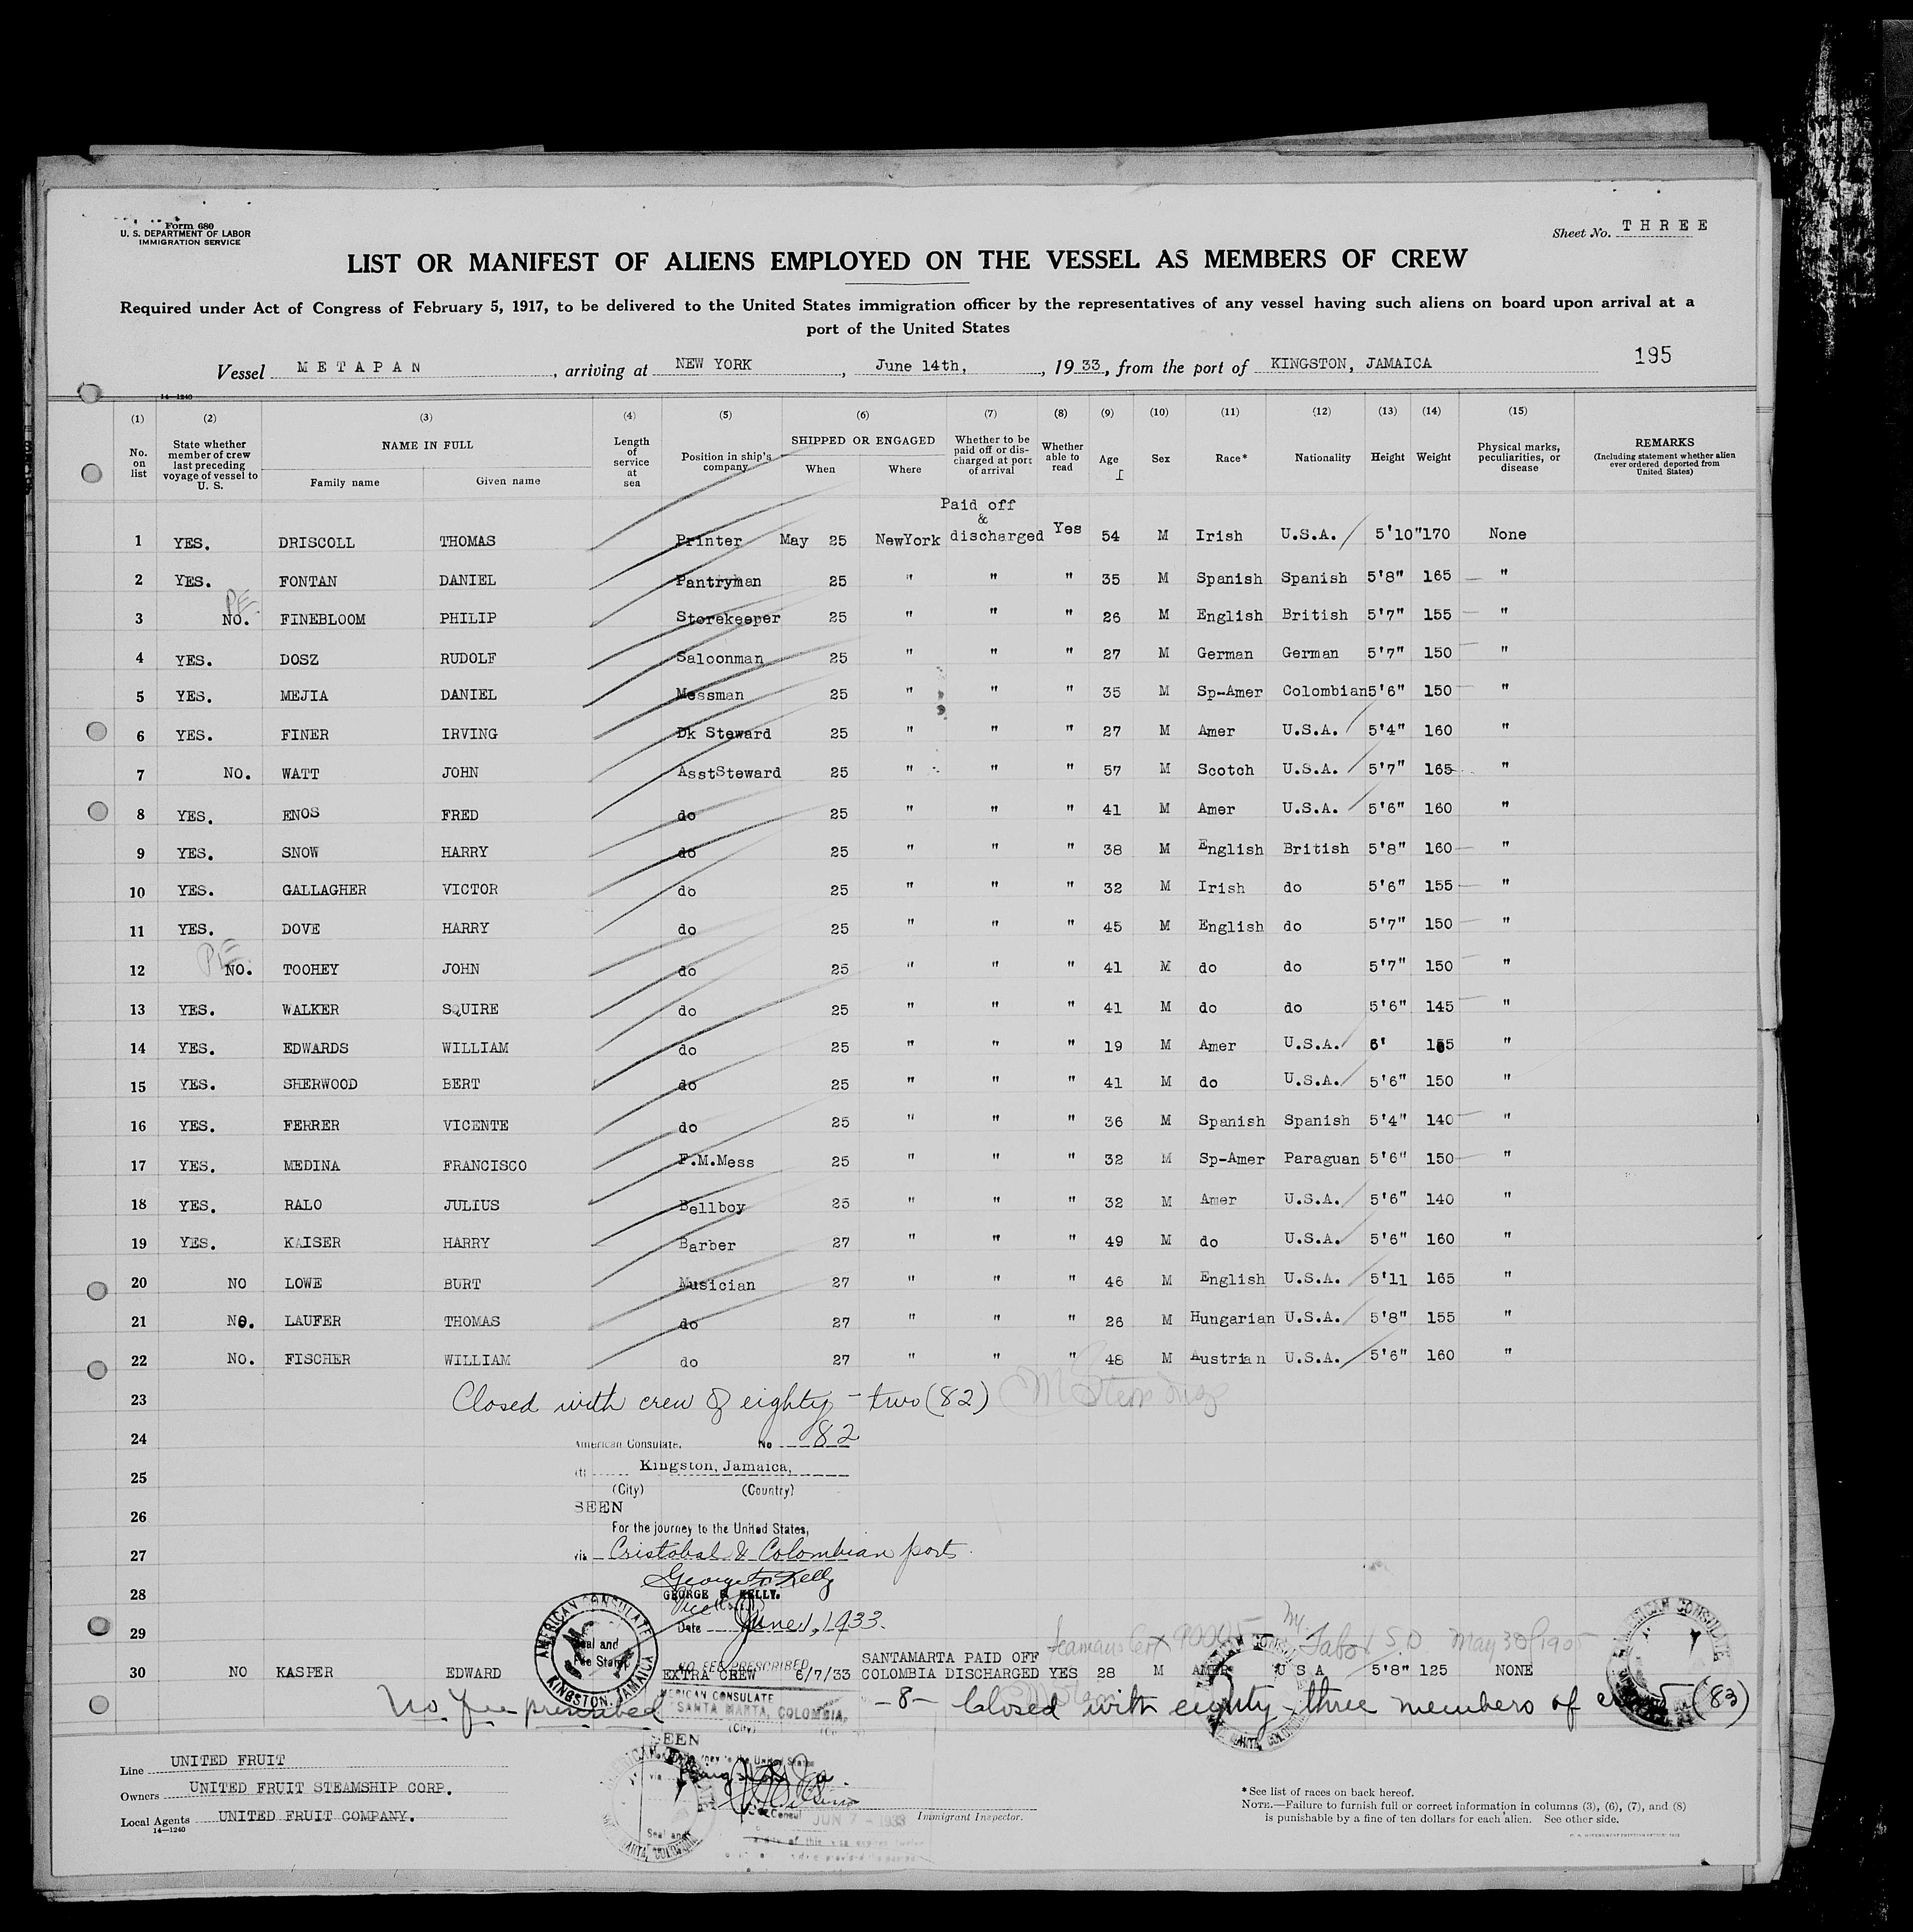 Form 680
U. S. DEPARTMENT OF LABOR
IMMIGRATION SERVICE
Sheet No. THREE
LIST OR MANIFEST OF ALIENS EMPLOYED ON THE VESSEL AS MEMBERS OF CREW
Required under Act of Congress of February 5, 1917, to be delivered to the United States immigration officer by the representatives of any vessel having such aliens on board upon arrival at a
port of the United States
Vessel METAPAN, arriving at NEW YORK, June 14th, , 1933, from the port of KINGSTON, JAMAICA
195
14—1240
(1) (2) (3) (4) (5) (6) (7) (8) (9) (10) (11) (12) (13) (14) (15)
No. on list
State whether member of crew last preceding voyage of vessel to U. S.
NAME IN FULL
Family name
Given name
Length of service at sea
Position in ship's company
SHIPPED OR ENGAGED
When
Where
Whether to be paid off or discharged at port of arrival
Whether able to read
Age
Sex
Race*
Nationality
Height
Weight
Physical marks, peculiarities, or disease
REMARKS
(Including statement whether alien ever ordered deported from United States)
1 YES. DRISCOLL THOMAS Printer May 25 NewYork Paid off & discharged Yes 54 M Irish U.S.A. 5'10" 170 None
2 YES. FONTAN DANIEL Pantryman 25 " " " 35 M Spanish Spanish 5'8" 165 "
PE
3 NO. FINEBLOOM PHILIP Storekeeper 25 " " " 26 M English British 5'7" 155 "
4 YES. DOSZ RUDOLF Saloonman 25 " " " 27 M German German 5'7" 150 "
5 YES. MEJIA DANIEL Messman 25 " " " 35 M Sp-Amer Colombian 5'6" 150 "
6 YES. FINER IRVING Dk Steward 25 " " " 27 M Amer U.S.A. 5'4" 160 "
7 NO. WATT JOHN AsstSteward 25 " " " 57 M Scotch U.S.A. 5'7" 165 "
8 YES. ENOS FRED do 25 " " " 41 M Amer U.S.A. 5'6" 160 "
9 YES. SNOW HARRY do 25 " " " 38 M English British 5'8" 160 "
10 YES. GALLAGHER VICTOR do 25 " " " 32 M Irish do 5'6" 155 "
11 YES. DOVE HARRY do 25 " " " 45 M English do 5'7" 150 "
PE
12 NO. TOOHEY JOHN do 25 " " " 41 M do do 5'7" 150 "
13 YES. WALKER SQUIRE do 25 " " " 41 M do do 5'6" 145 "
14 YES. EDWARDS WILLIAM do 25 " " " 19 M Amer U.S.A. 6' "
15 YES. SHERWOOD BERT do 25 " " " 41 M do U.S.A. 5'6" 150 "
16 YES. FERRER VICENTE do 25 " " " 36 M Spanish Spanish 5'4" 140 "
17 YES. MEDINA FRANCISCO F.M.Mess 25 " " " 32 M Sp-Amer Paraguan 5'6" 150 "
18 YES. RALO JULIUS Bellboy 25 " " " 32 M Amer U.S.A. 5'6" 140 "
19 YES. KAISER HARRY Barber 27 " " " 49 M do U.S.A. 5'6" 160 "
20 NO LOWE BURT Musician 27 " " " 46 M English U.S.A. 5'11 165 "
21 NO. LAUFER THOMAS do 27 " " " 26 M Hungarian U.S.A. 5'8" 155 "
22 NO. FISCHER WILLIAM do 27 " " " 48 M Austrian U.S.A. 5'6" 160 "
23 Closed with crew of eighty-two (82)
24 American Consulate, No 82
25 Kingston, Jamaica,
(City) (Country)
26 SEEN
For the journey to the United States,
27 via Cristobal & Colombian ports
28 GEORGE KELLY.
Vice
29 Date June 1, 1933.
AMERICAN CONSULATE KINGSTON, JAMAICA
Seal and Fee Stamp
May 30/1905
NO FEE PRESCRIBED
30 NO KASPER EDWARD EXTRA CREW 6/7/33 SANTAMARTA COLOMBIA PAID OFF DISCHARGED YES 28 M AMER U S A 5'8" 125 NONE
No fee prescribed
AMERICAN CONSULATE
SANTA MARTA, COLOMBIA,
(City)
-8- Closed with eighty-three members of crew (83)
SEEN
Line UNITED FRUIT
Owners UNITED FRUIT STEAMSHIP CORP.
Local Agents UNITED FRUIT COMPANY.
14—1240
Consul
JUN 7 - 1933
Seal and
Immigrant Inspector.
*See list of races on back hereof.
NOTE.—Failure to furnish full or correct information in columns (3), (6), (7), and (8)
is punishable by a fine of ten dollars for each alien. See other side.